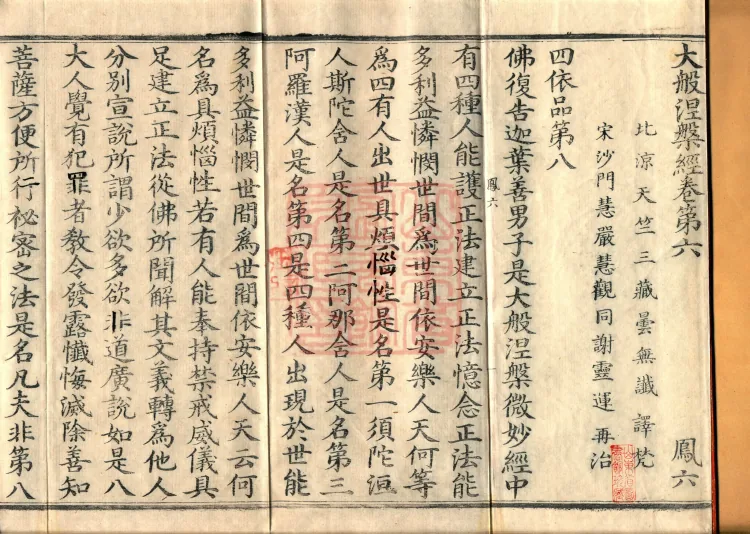 大般涅槃經卷第六 鳳六
北涼天竺三藏曇無讖譯梵
宋沙門慧嚴慧觀同謝靈運再治
四依品第八
佛復告迦葉善男子是大般涅槃微妙經中
鳳六
有四種人能護正法建立正法憶念正法能
多利益憐憫世間為世間依安樂人天何等
為四有人出世具煩惱性是名第一須陀洹
人斯陀含人是名第二阿那含人是名第三
阿羅漢人是名第四是四種人出現於世能
多利益憐憫世間為世間依安樂人天云何
名為具煩惱性若有人能奉持禁戒威儀具
足建立正法從佛所聞解其文義轉為他人
分別宣說所謂少欲多欲非道廣說如是八
大人覺有犯罪者教令發露懺悔滅除善知
菩薩方便所行祕密之法是名凡夫非第八